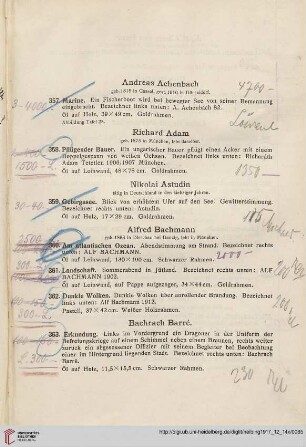 Andreas Achenbach
4700-
3-4000
357. Marine. Ein Fischerboot wird bei bewegter See von seiner Bemannung
eingebracht. Bezeichnet links unten: A. Achenbach 82.
Öl auf Holz, 39×49 cm. Goldrahmen.
Abbildung Tafel 25.
Richard Adam
geb. 1873 in München, lebt daselbst.
358. Pflügender Bauer. Ein ungarischer Bauer pflügt einen Acker mit einem
Doppelgespann von weißen Ochsen. Bezeichnet links unten: Richard
Adam Tetetlen 1906/1907 München.
Öl auf Leinwand, 48×78 cm. Goldrahmen.
1500-2
1350-
Nikolai Astudin
tätig in Deutschland in den siebziger Jahren.
359. Gebirgssee. Blick von erhöhtem Ufer auf den See. Gewitterstimmung.
Bezeichnet rechts unten: Astudin.
Öl auf Holz, 17×29 cm. Goldrahmen.
185
Alfred Bachmann
2500
360. Am atlantischen Ozean. Abendstimmung am Strand. Bezeichnet rechts
unten: ALF BACHMANN.
2000
Öl auf Leinwand, 120×190 cm. Schwarzer Rahmen.
361. Landschaft. Sommerabend in Jütland. Bezeichnet rechts unten: ALF
BACHMANN 1902.
Öl auf Leinwand, auf Pappe aufgezogen, 34×44 cm. Goldrahmen.
362. Dunkle Wolken. Dunkle Wolken über anrollender Brandung. Bezeichnet
links unten: Alf Bachmann 1912.
Pastell, 37×42 cm. Weißer Holzrahmen.
300
Bachrach Barré.
363. Erkundung. Links im Vordergrund ein Dragoner in der Uniform der
Befreiungskriege auf einem Schimmel neben einem Braunen, rechts weiter
zurück ein abgesessener Offizier mit seinem Begleiter bei Beobachtung
einer im Hintergrund liegenden Stadt. Bezeichnet rechts unten: Bachrach
Barré.
Öl auf Holz, 11,5×15,5 cm. Schwarzer Rahmen.
230
http://digi.ub.uni-heidelberg.de/diglit/helbing1917_12_14x/0035